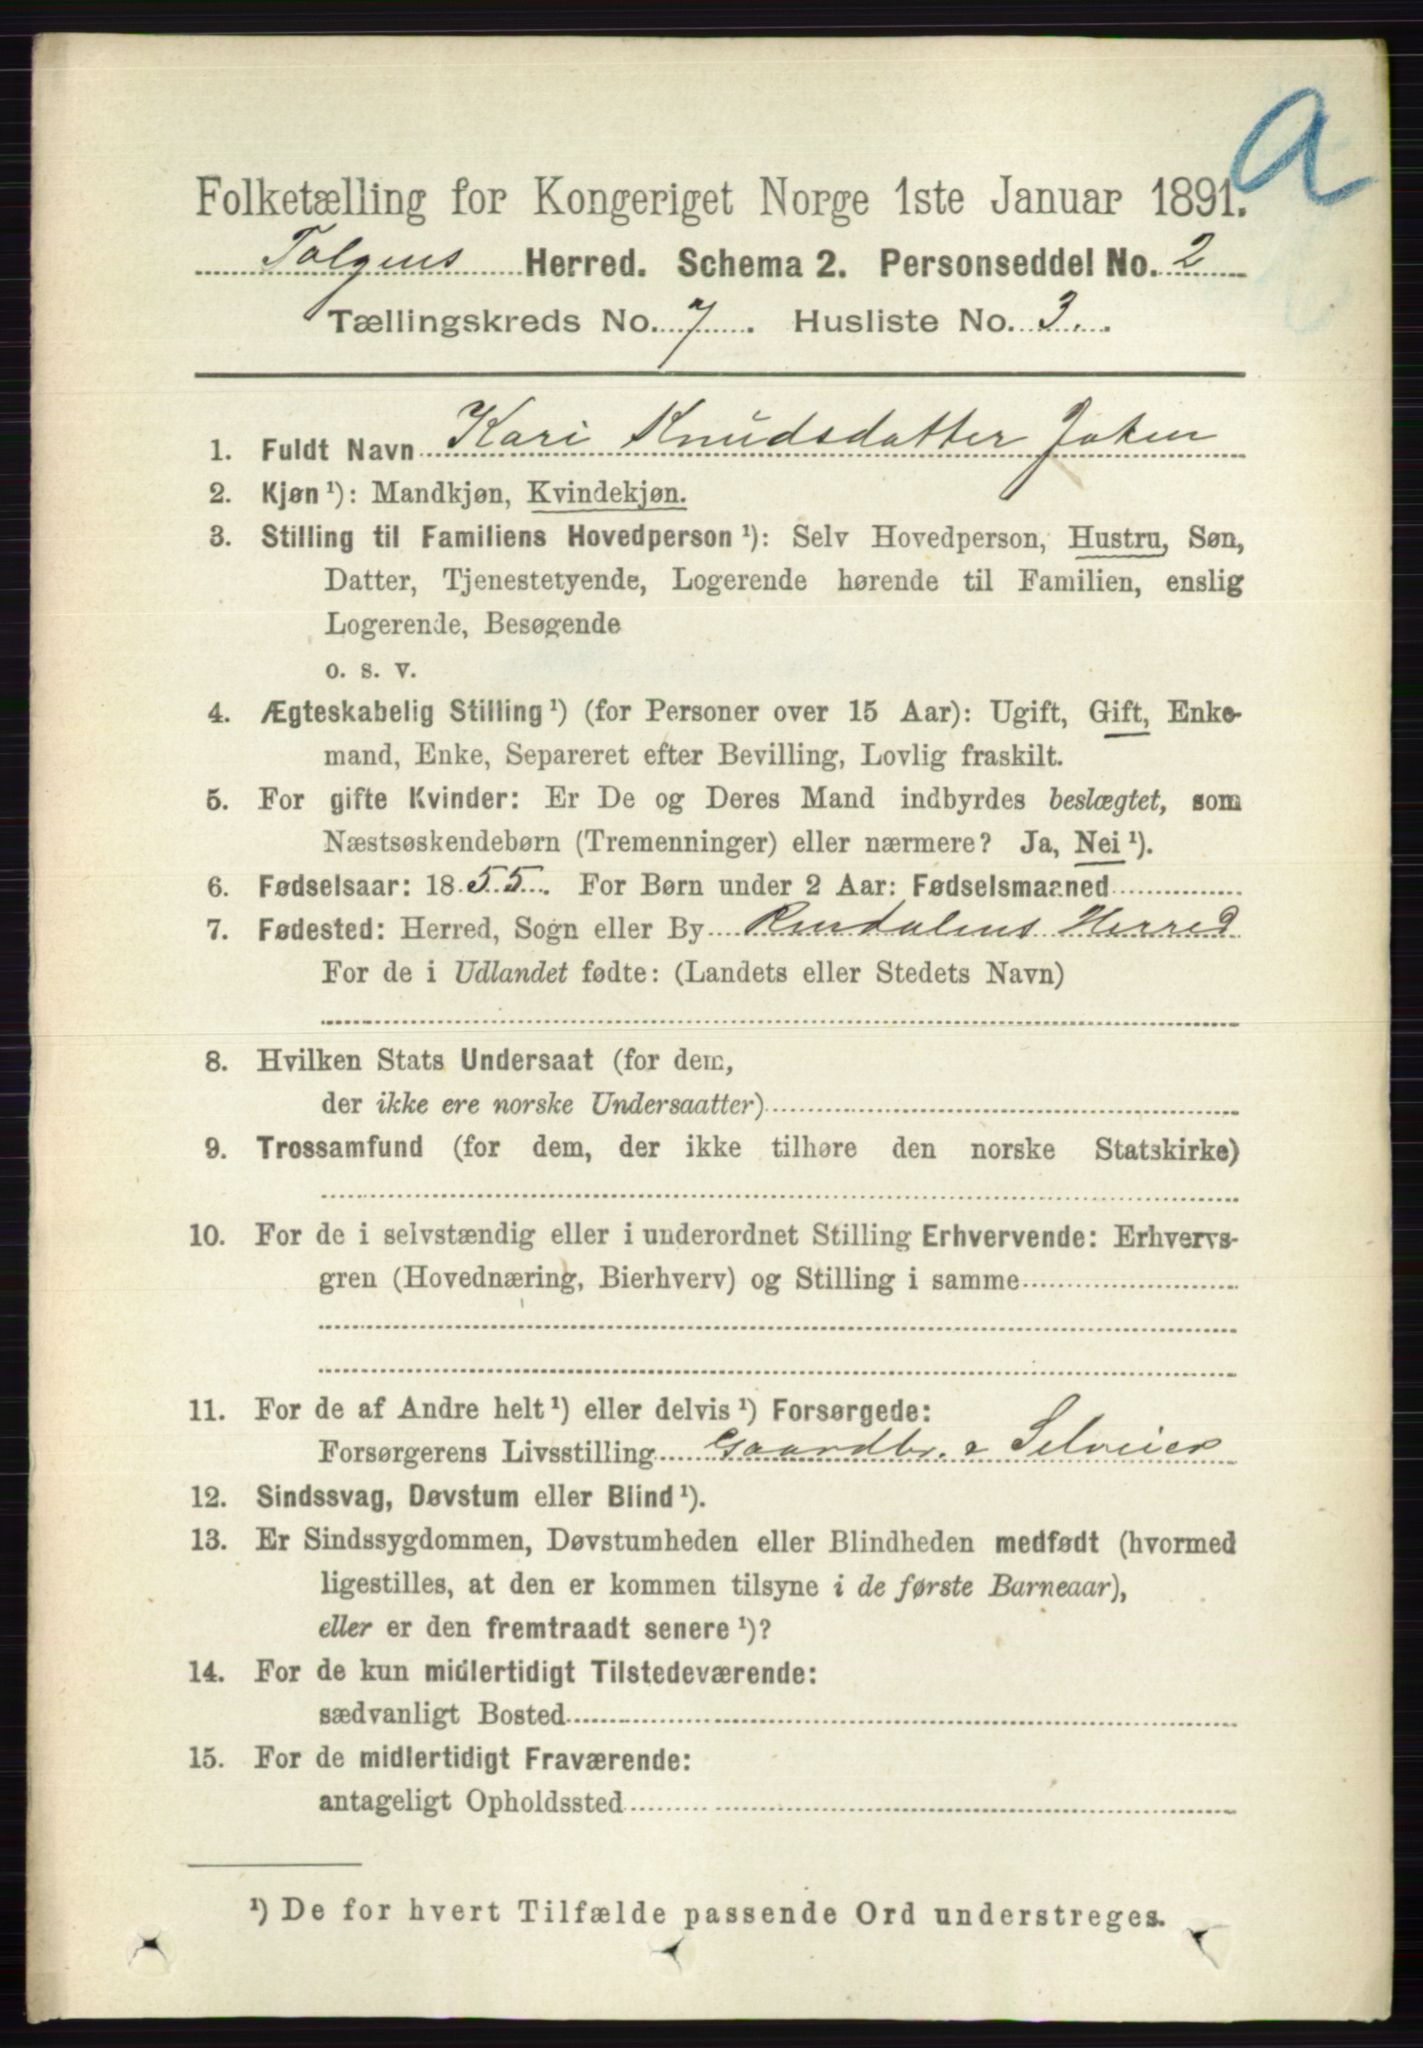 a
Folketælling for Kongeriget Norge 1ste Januar 1891.
Tolgens Herred. Schema 2. Personseddel No. 2
Tællingskreds No. 7. Husliste No. 3.
1. Fuldt Navn Kari Knudsdatter Joten
2. Kjøn ¹): Mandkjøn, Kvindekjøn.
3. Stilling til Familiens Hovedperson ¹): Selv Hovedperson, Hustru, Søn,
Datter, Tjenestetyende, Logerende hørende til Familien, enslig
Logerende, Besøgende
o. s. v.
4. Ægteskabelig Stilling ¹) (for Personer over 15 Aar): Ugift, Gift, Enke-
mand, Enke, Separeret efter Bevilling, Lovlig fraskilt.
5. For gifte Kvinder: Er De og Deres Mand indbyrdes beslægtet, som
Næstsøskendebørn (Tremenninger) eller nærmere? Ja, Nei ¹).
6. Fødselsaar: 1855. For Børn under 2 Aar: Fødselsmaaned
7. Fødested: Herred, Sogn eller By Rendalens Herred
For de i Udlandet fødte: (Landets eller Stedets Navn)
8. Hvilken Stats Undersaat (for dem,
der ikke ere norske Undersaatter)
9. Trossamfund (for dem, der ikke tilhøre den norske Statskirke)
10. For de i selvstændig eller i underordnet Stilling Erhvervende: Erhvervs-
gren (Hovednæring, Bierhverv) og Stilling i samme
11. For de af Andre helt ¹) eller delvis ¹) Forsørgede:
Forsørgerens Livsstilling Gaardbr. & Selveier
12. Sindssvag, Døvstum eller Blind ¹).
13. Er Sindssygdommen, Døvstumheden eller Blindheden medfødt (hvormed
ligestilles, at den er kommen tilsyne i de første Barneaar),
eller er den fremtraadt senere ¹)?
14. For de kun midlertidigt Tilstedeværende:
sædvanligt Bosted
15. For de midlertidigt Fraværende:
antageligt Opholdssted
¹) De for hvert Tilfælde passende Ord understreges.